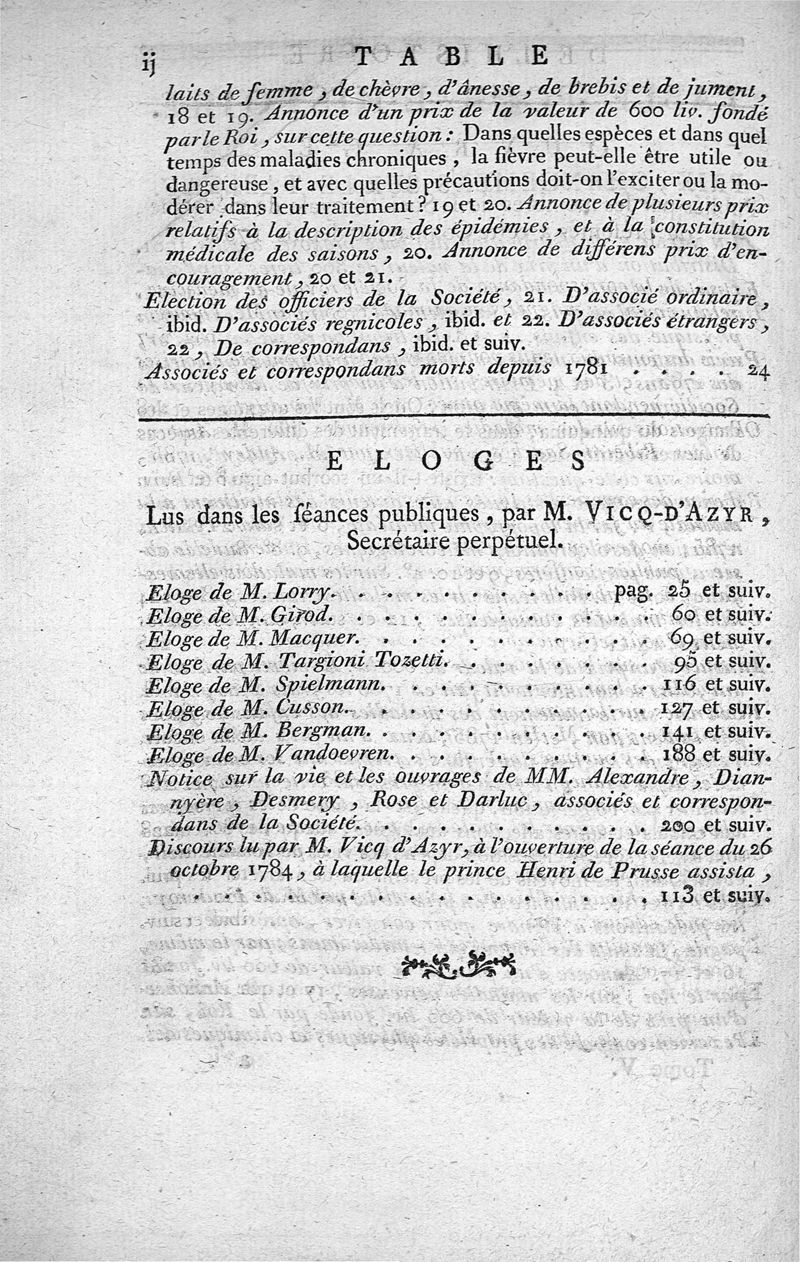 ij TABLE
laits de femme, de chèvre, d'ânesse, de brebis et de jument,
18 et 19. Annonce d'un prix de la valeur de 600 liv. fondé
par le Roi, sur cette question : Dans quelles espèces et dans quel
temps des maladies chroniques, la fièvre peut-elle être utile ou
dangereuse, et avec quelles précautions doit-on l'exciter ou la mo-
dérer dans leur traitement ? 19 et 20. Annonce de plusieurs prix
relatifs à la description des épidémies, et à la constitution
médicale des saisons, 20. Annonce de différens prix d'en-
couragement, 20 et 21.
Election des officiers de la Société, 21. D'associé ordinaire,
ibid. D'associés regnicoles, ibid. et 22. D'associés étrangers,
22, De correspondans, ibid. et suiv.
Associés et correspondans morts depuis 1781 . . . . 24
ELOGES
Lus dans les séances publiques, par M. VICQ-D'AZYR,
Secrétaire perpétuel.
Eloge de M. Lorry. . . . . . . . . . . pag. 25 et suiv.
Eloge de M. Girod. . . . . . . . . . . . 60 et suiv.
Eloge de M. Macquer. . . . . . . . . . . 69 et suiv.
Eloge de M. Targioni Tozetti. . . . . . . . 95 et suiv.
Eloge de M. Spielmann. . . . . . . . . . 116 et suiv.
Eloge de M. Cusson. . . . . . . . . . . 127 et suiv.
Eloge de M. Bergman. . . . . . . . . . . 141 et suiv.
Eloge de M. Vandoevren. . . . . . . . . . 188 et suiv.
Notice sur la vie et les ouvrages de MM. Alexandre, Dian-
nyère, Desmery, Rose et Darluc, associés et correspon-
dans de la Société. . . . . . . . . . . 200 et suiv.
Discours lu par M. Vicq d'Azyr, à l'ouverture de la séance du 26
octobre 1784, à laquelle le prince Henri de Prusse assista,
. . . . . . . . . . . . . . . . 113 et suiv.